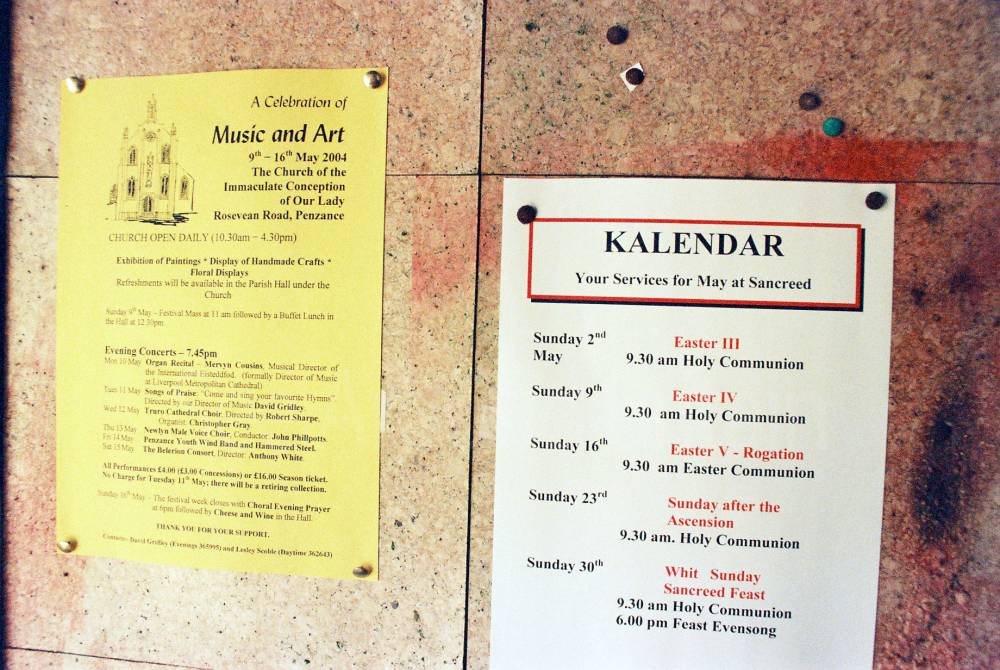 A Celebration of
Music and Art
9th – 16th May 2004
The Church of the
Immaculate Conception
of Our Lady
Rosevean Road, Penzance
CHURCH OPEN DAILY (10.30am – 4.30pm)
Exhibition of Paintings * Display of Handmade Crafts *
Floral Displays
Refreshments will be available in the Parish Hall under the
Church
Sunday 9th May – Festival Mass at 11 am followed by a Buffet Lunch in
the Hall at 12.30pm
Evening Concerts – 7.45pm
Mon 10 May Organ Recital – Mervyn Cousins, Musical Director of
the International Eisteddfod. (formally Director of Music
at Liverpool Metropolitan Cathedral)
Tues 11 May Songs of Praise: "Come and sing your favourite Hymns".
Directed by our Director of Music David Gridley.
Wed 12 May Truro Cathedral Choir. Directed by Robert Sharpe,
Organist: Christopher Gray.
Thu 13 May Newlyn Male Voice Choir, Conductor: John Phillpotts.
Fri 14 May Penzance Youth Wind Band and Hammered Steel.
Sat 15 May The Belerion Consort, Director: Anthony White.
All Performances £4.00 (£3.00 Concessions) or £16.00 Season ticket.
No Charge for Tuesday 11th May; there will be a retiring collection.
Sunday 16th May – The festival week closes with Choral Evening Prayer
at 6pm followed by Cheese and Wine in the Hall.
THANK YOU FOR YOUR SUPPORT.
Contacts: David Gridley (Evenings 365995) and Lesley Scoble (Daytime 362643)
KALENDAR
Your Services for May at Sancreed
Sunday 2nd May
Easter III
9.30 am Holy Communion
Sunday 9th
Easter IV
9.30 am Holy Communion
Sunday 16th
Easter V - Rogation
9.30 am Easter Communion
Sunday 23rd
Sunday after the
Ascension
9.30 am. Holy Communion
Sunday 30th
Whit Sunday
Sancreed Feast
9.30 am Holy Communion
6.00 pm Feast Evensong